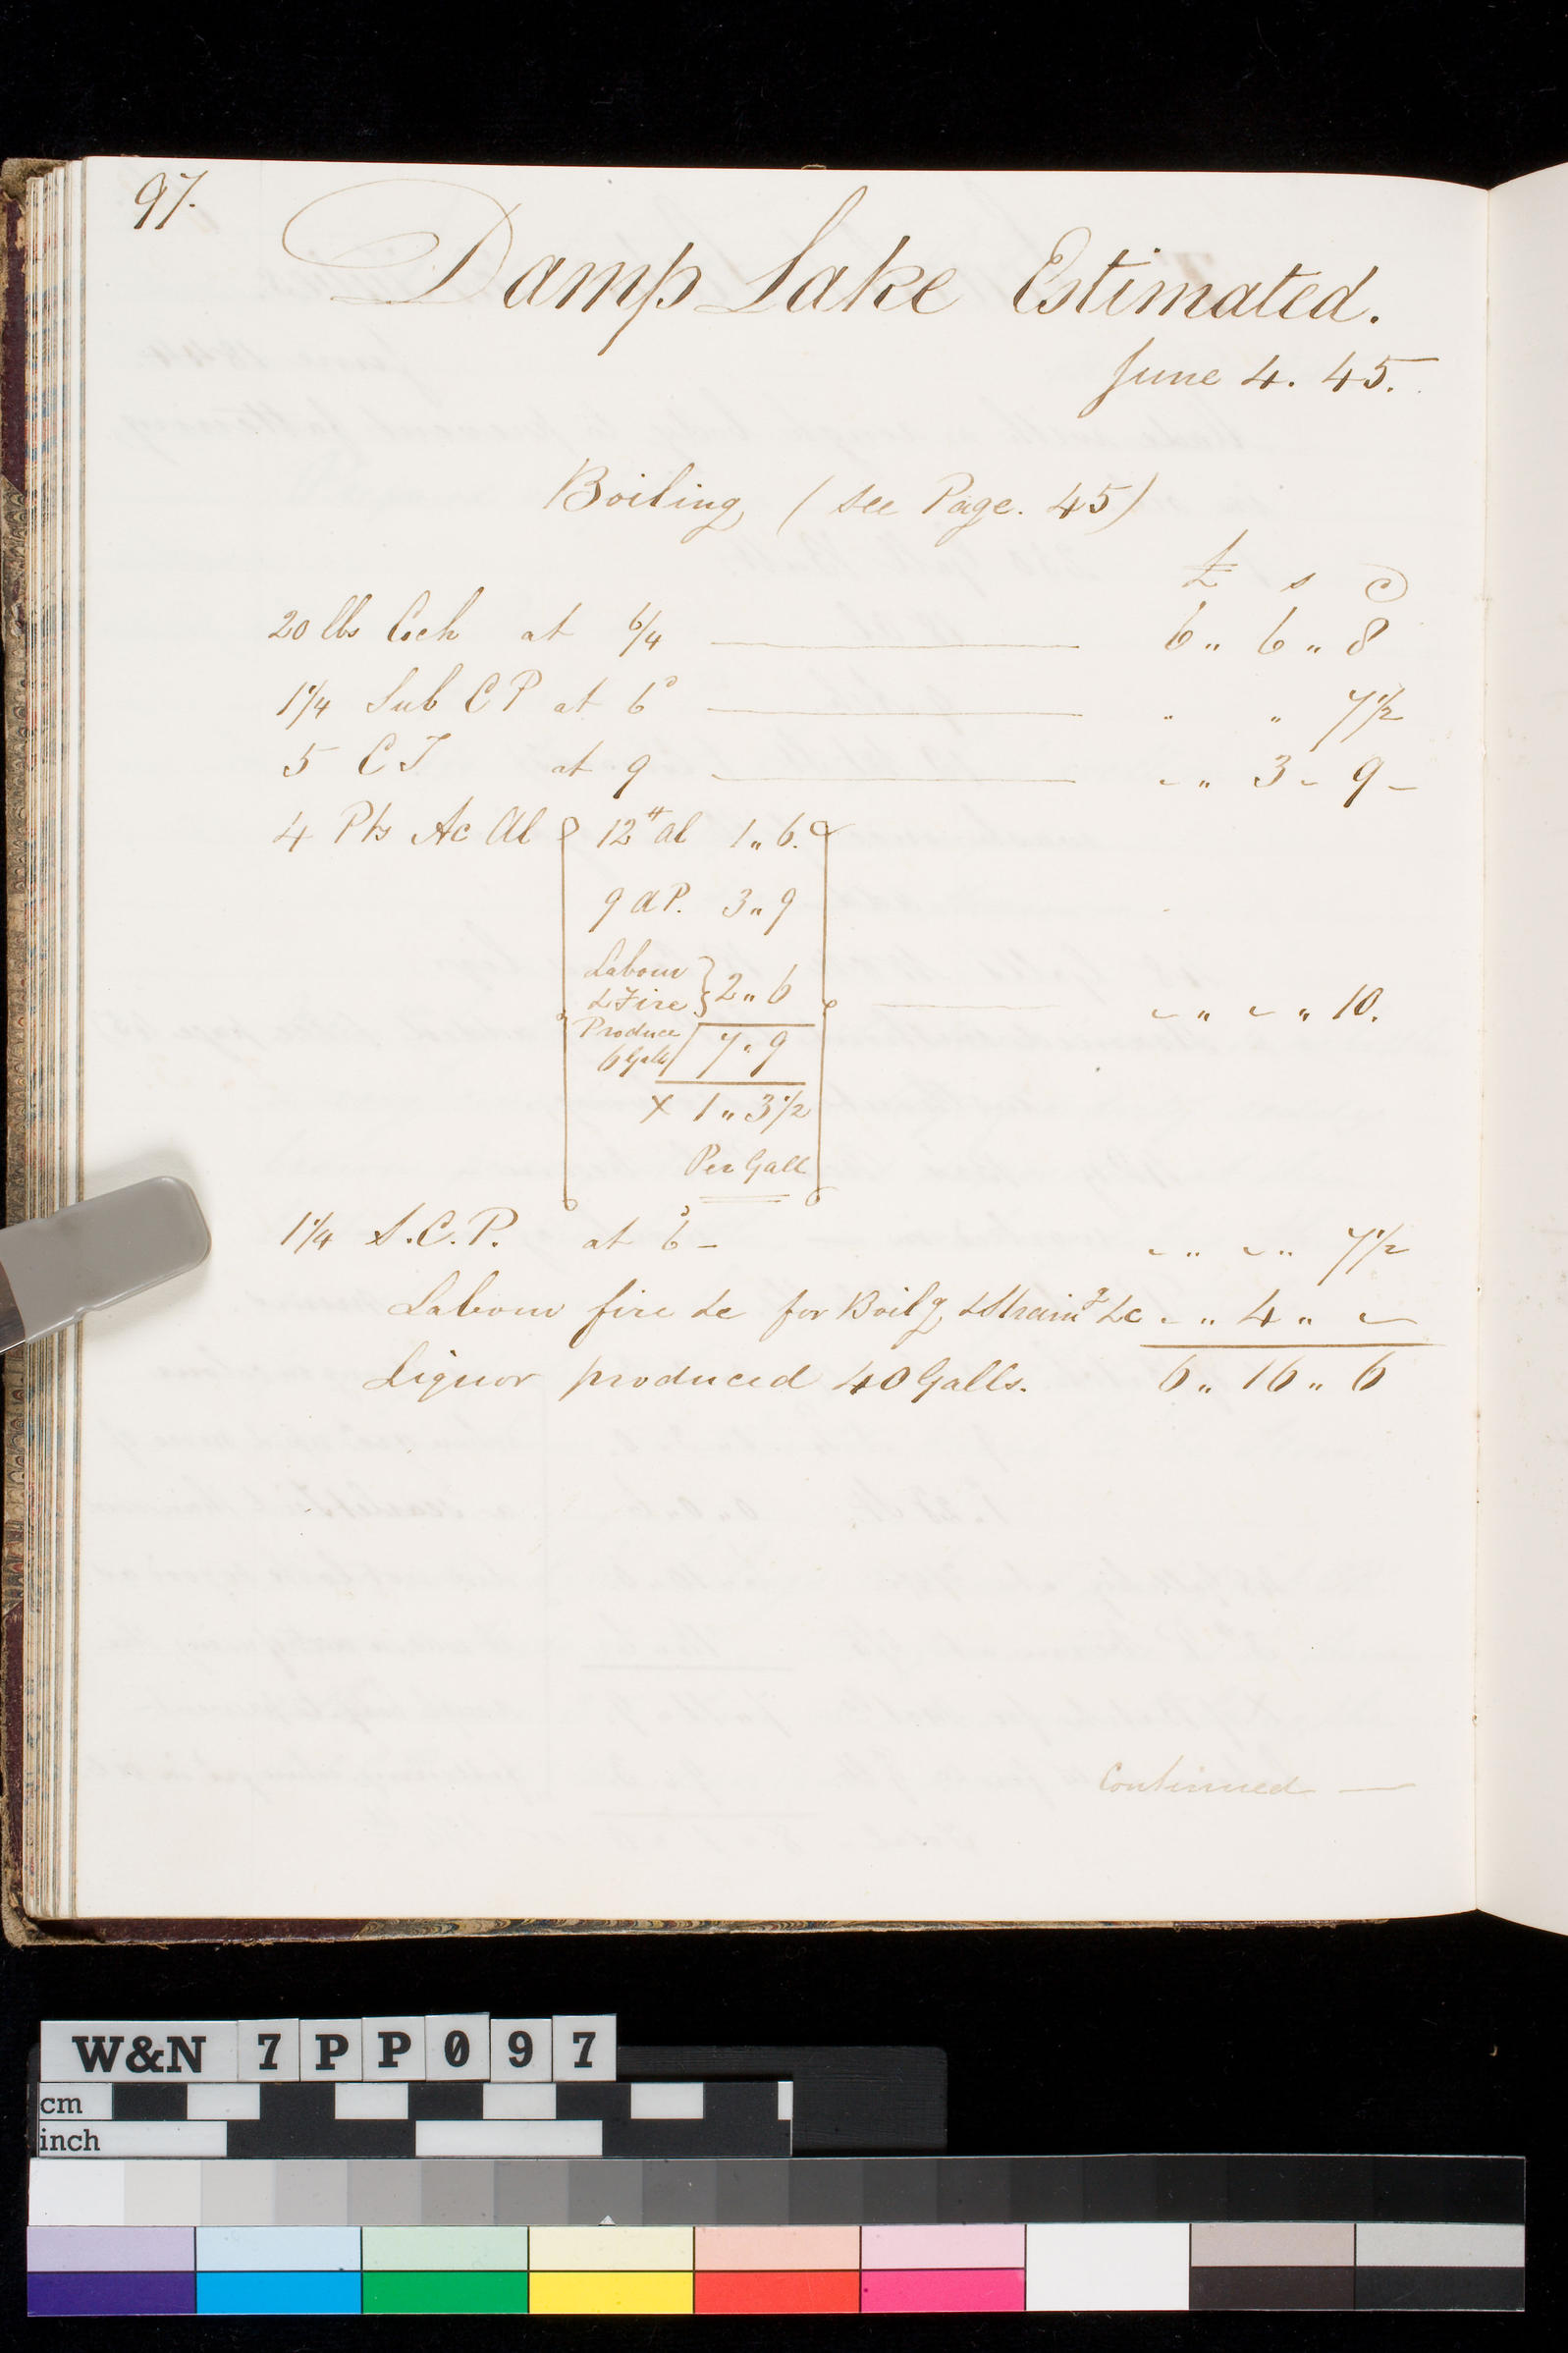 97.
Damp Lake Estimated.
June 4. 45.
Boiling (see Page. 45)
£ s d
20 lbs Coch at 6/4 — 6 " 6 " 8
1 1/4 Sub C P at 6d — " " 7 1/2
5 C T at 9 — " " 3 " 9 -
4 Pts Ac Al
12# al 1 " 6.
9 a P. 3 " 9
Labour & Fire } 2 " 6 — " " " " 10.
Produce 6 Galls / 7 " 9
X 1 " 3 1/2
Per Gall
1 1/4 S.C.P. at 6d - " " " " 7 1/2
Labour fire &c for Boilg & Straing &c " " 4 " -
Liquor produced 40 Galls. 6 " 16 " 6
Continued —
W&N 7PP097
cm
inch